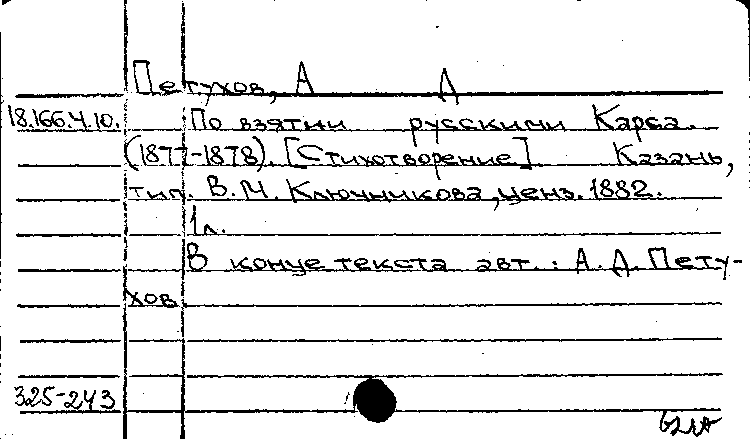 Петухов, А Д
18.166.4.10. По взятии русскими Карса.
(1877-1878). [Стихотворение] Казань,
тип. В.М. Ключникова, ценз. 1882.
1 л.
В конце текста авт.: А.Д. Пету-
хов.
325-243